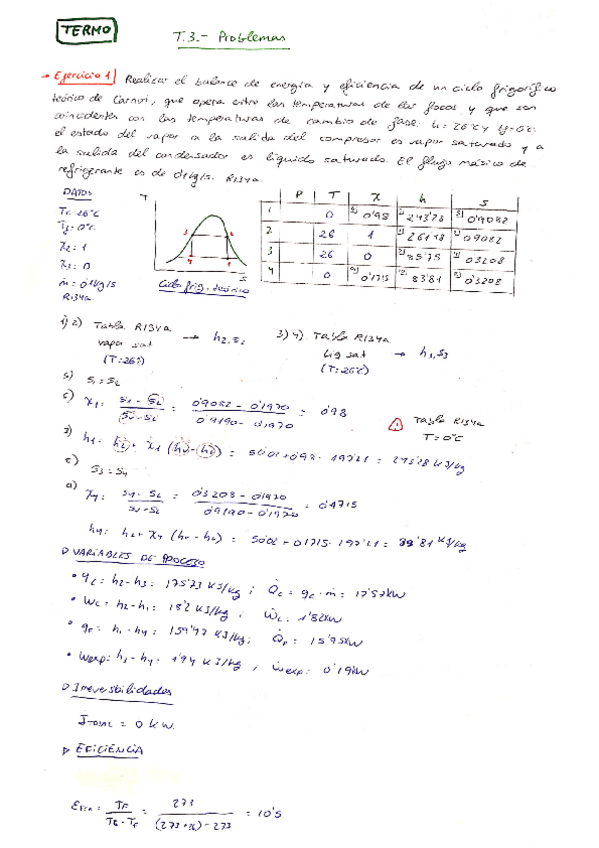 TERMO
T.3.- Problemas
→ Ejercicio 1 Realizar el balance de energía y eficiencia de un ciclo frigorífico
teórico de Carnot, que opera entre las temperaturas de los focos y que son
coincidentes con las temperaturas de cambio de fase: 26ºC y 0ºC
el estado del vapor a la salida del compresor es vapor saturado y a
la salida del condensador es líquido saturado. El flujo másico de
refrigerante es de 0'1 kg/s. R134a.
DATOS
Tc = 26ºC
Tf = 0ºC
x2 = 1
x3 = 0
ṁ = 0'1 kg/s
R134a
T
3 2
4 1
S
Ciclo frig. teórico
P T x h s
1 0 0'98 243'28 0'9082
2 26 1 261'48 0'9082
3 26 0 85'75 0'3208
4 0 0'1715 83'81 0'3208
1) 2) Tabla R134a
vapor sat → h2, s2
(T: 26º)
3) 4) Tabla R134a
liq sat → h3, s3
(T: 26ºC)
5) s1 = s2
6) x1 = (s1 - sL)/(sV - sL) = (0'9082 - 0'1970)/(0'9190 - 0'1970) = 0'98
Tabla R134a
T = 0ºC
7) h1 = hL + x1 (hV - hL) = 50'02 + 0'98 · 197'21 = 243'28 KJ/kg
s3 = s4
x4 = (s4 - sL)/(sV - sL) = (0'3208 - 0'1970)/(0'9190 - 0'1970) = 0'1715
h4 = hL + x4 (hV - hL) = 50'02 + 0'1715 · 197'21 = 83'81 KJ/kg
▷ VARIABLES DE PROCESO
• qc = h2 - h3 = 175'73 KJ/kg ; Q̇c = qc · ṁ = 17'57 kW
• wc = h2 - h1 = 18'2 KJ/kg ; Ẇc = 1'82 kW
• qf = h1 - h4 = 159'47 KJ/kg ; Q̇f = 15'95 kW
• wexp = h3 - h4 = 1'94 KJ/kg ; ẇexp = 0'19 kW
▷ Irreversibilidades
İTOTAL = 0 kW.
▷ EFICIENCIA
TF/(TC - TF) = 273/((273+26) - 273) = 10'5